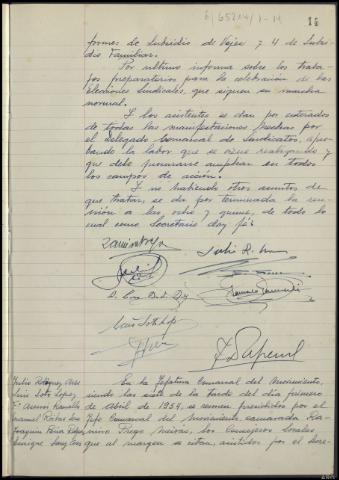 14
formes de Subsidio de Vejez y 4 de Subsi-
dio Familiar.
Por último informa sobre los traba-
jos preparatorios para la celebración de las
Elecciones Sindicales, que siguen su marcha
normal.
Y los asistentes se dan por enterados
de todas las manifestaciones hechas por
el Delegado Comarcal de Sindicatos, apro-
bando la labor que se viene realizando y
que debe procurarse ampliar en todos
los campos de acción.
Y no habiendo otros asuntos de
que tratar, se da por terminada la reu-
nión a las ocho y quince, de todo lo
cual como Secretario doy fé.
Julio R.
Luis Soto Lopez
En la Jefatura Comarcal del Movimiento,
Luis Soto Lopez, siendo las siete de la tarde del día primero
de Abril de 1954, se reunen presididos por el
Manuel Jefe Comarcal del Movimiento camarada
Joaquin los Consejeros Locales
Enrique que al margen se citan, asistidos por el Secre-